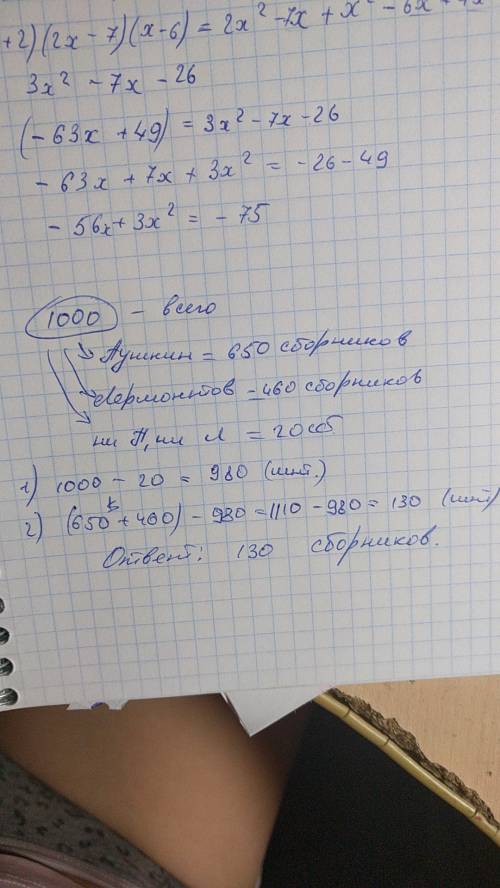 +2)(2x-7)(x-6) = 2x² -7x + x² - 6x
3x² - 7x - 26
(-63x + 49) = 3x² - 7x - 26
- 63x + 7x + 3x² = - 26 - 49
- 56x + 3x² = - 75
1000 - всего
Пушкин = 650 сборников
Лермонтов = 460 сборников
ни П, ни Л = 20 сб
1) 1000 - 20 = 980 (шт.)
2) (650 + 460) - 980 = 1110 - 980 = 130 (шт)
Ответ: 130 сборников.